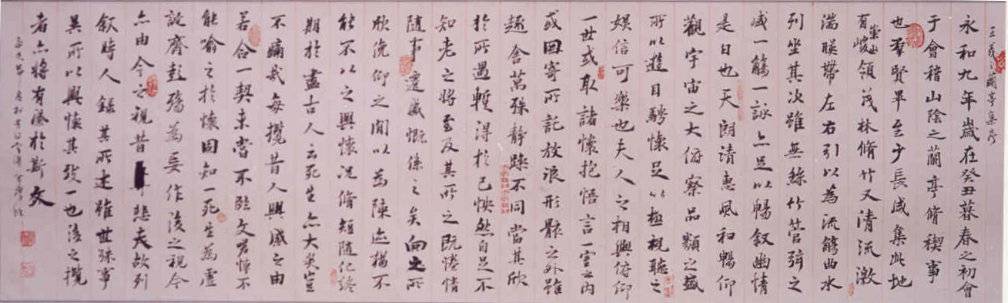 王羲之蘭亭集序
永和九年歲在癸丑暮春之初會
于會稽山陰之蘭亭脩禊事
也羣賢畢至少長咸集此地
有崇山峻領茂林脩竹又清流激
湍暎帶左右引以為流觴曲水
列坐其次雖無絲竹管弦之
盛一觴一詠亦足以暢敘幽情
是日也天朗清惠風和暢仰
觀宇宙之大俯察品類之盛
所以遊目騁懷足以極視聽之
娛信可樂也夫人之相與俯仰
一世或取諸懷抱悟言一室之內
或因寄所託放浪形骸之外雖
趣舍萬殊靜躁不同當其欣
於所遇暫得於己怏然自足不
知老之將至及其所之既惓情
隨事遷感慨係之矣向之所
欣俛仰之閒以為陳迹猶不
能不以之興懷況脩短隨化終
期於盡古人云死生亦大矣豈
不痛哉每攬昔人興感之由
若合一契未嘗不臨文嗟悼不
能喻之於懷固知一死生為虛
誕齊彭殤為妄作後之視今
亦由今之視昔悲夫故列
敘時人錄其所述雖世殊事
異所以興懷其致一也後之攬
者亦將有感於斯文